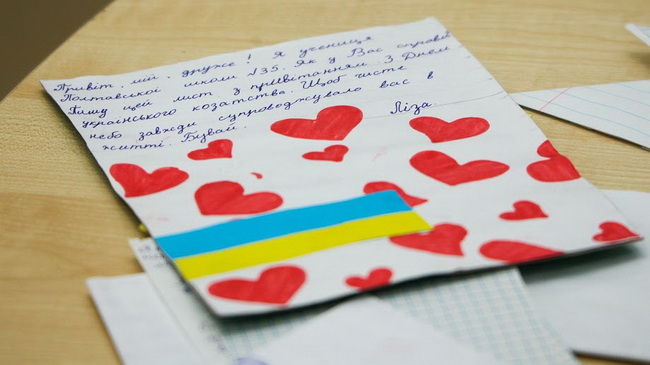 Привіт, мій друже! Я учениця
Полтавської школи №35. Як у Вас справи?
Пишу цей лист з привітанням з Днем
українського козатства. Щоб чисте
небо завжди супроводжувало вас в
житті. Бувай.
Ліза.